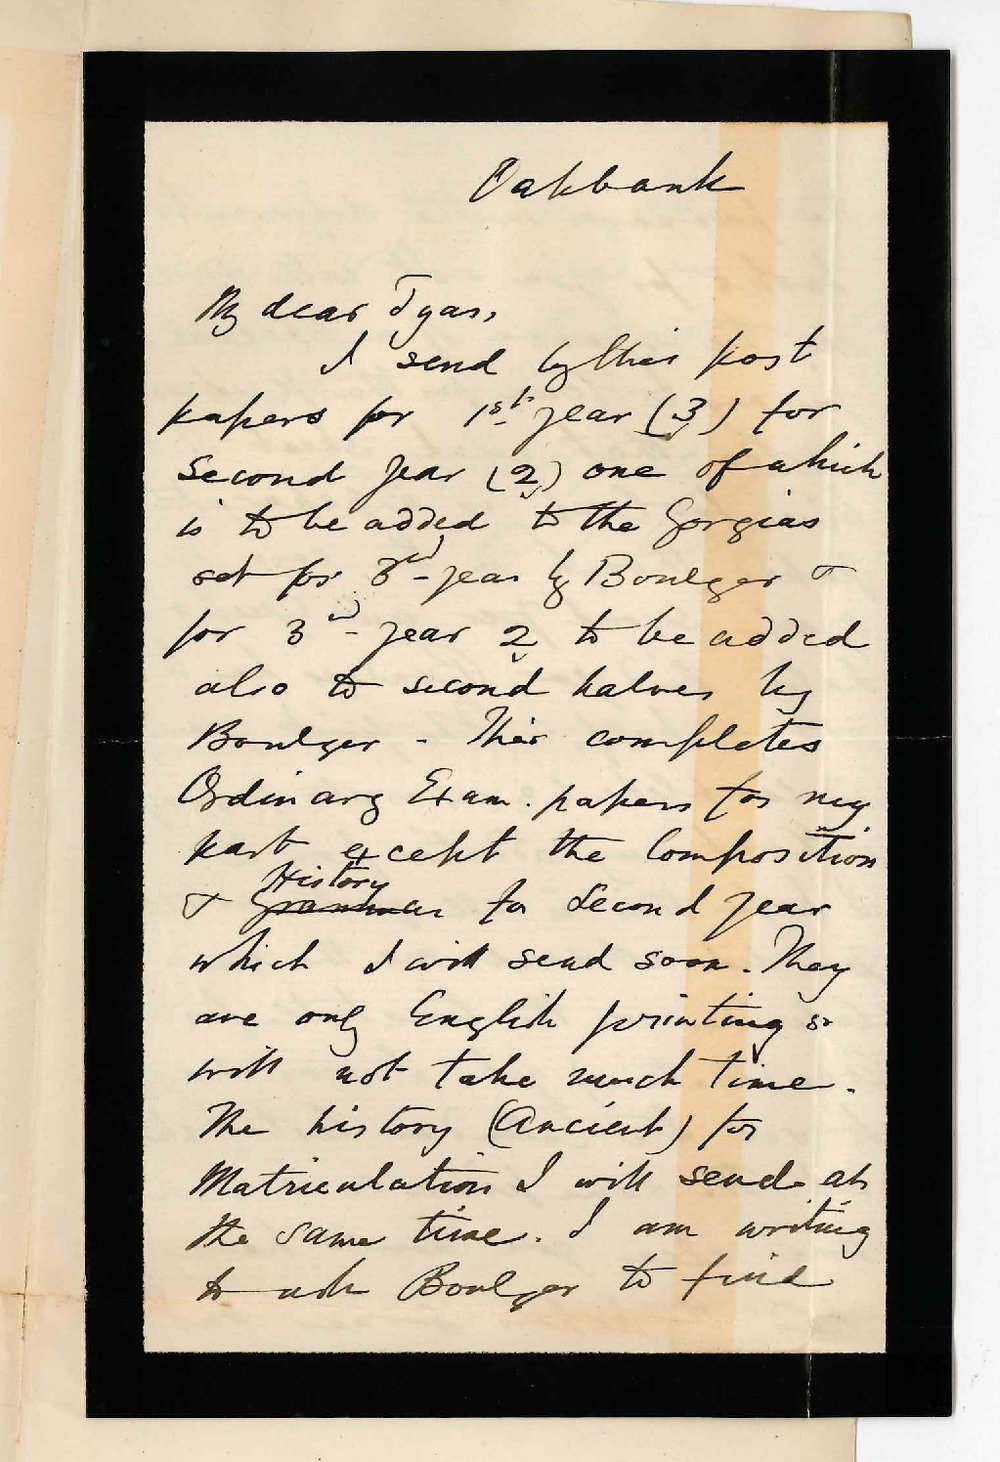 Oakbank
My dear Tyas,
I send by this post
papers for 1st year (3) for
second year (2) one of which
is to be added to the Gorgias
set for 3rd year by Boulger &
for 3rd year 2 to be added
also to second halves by
Boulger - This completes
Ordinary Exam. papers for my
part except the Composition
& Grammar History for Second year
which I will send soon. They
are only English printing so
will not take much time.
The history (Ancient) for
Matriculation I will send at
the same time. I am writing
to ask Boulger to find